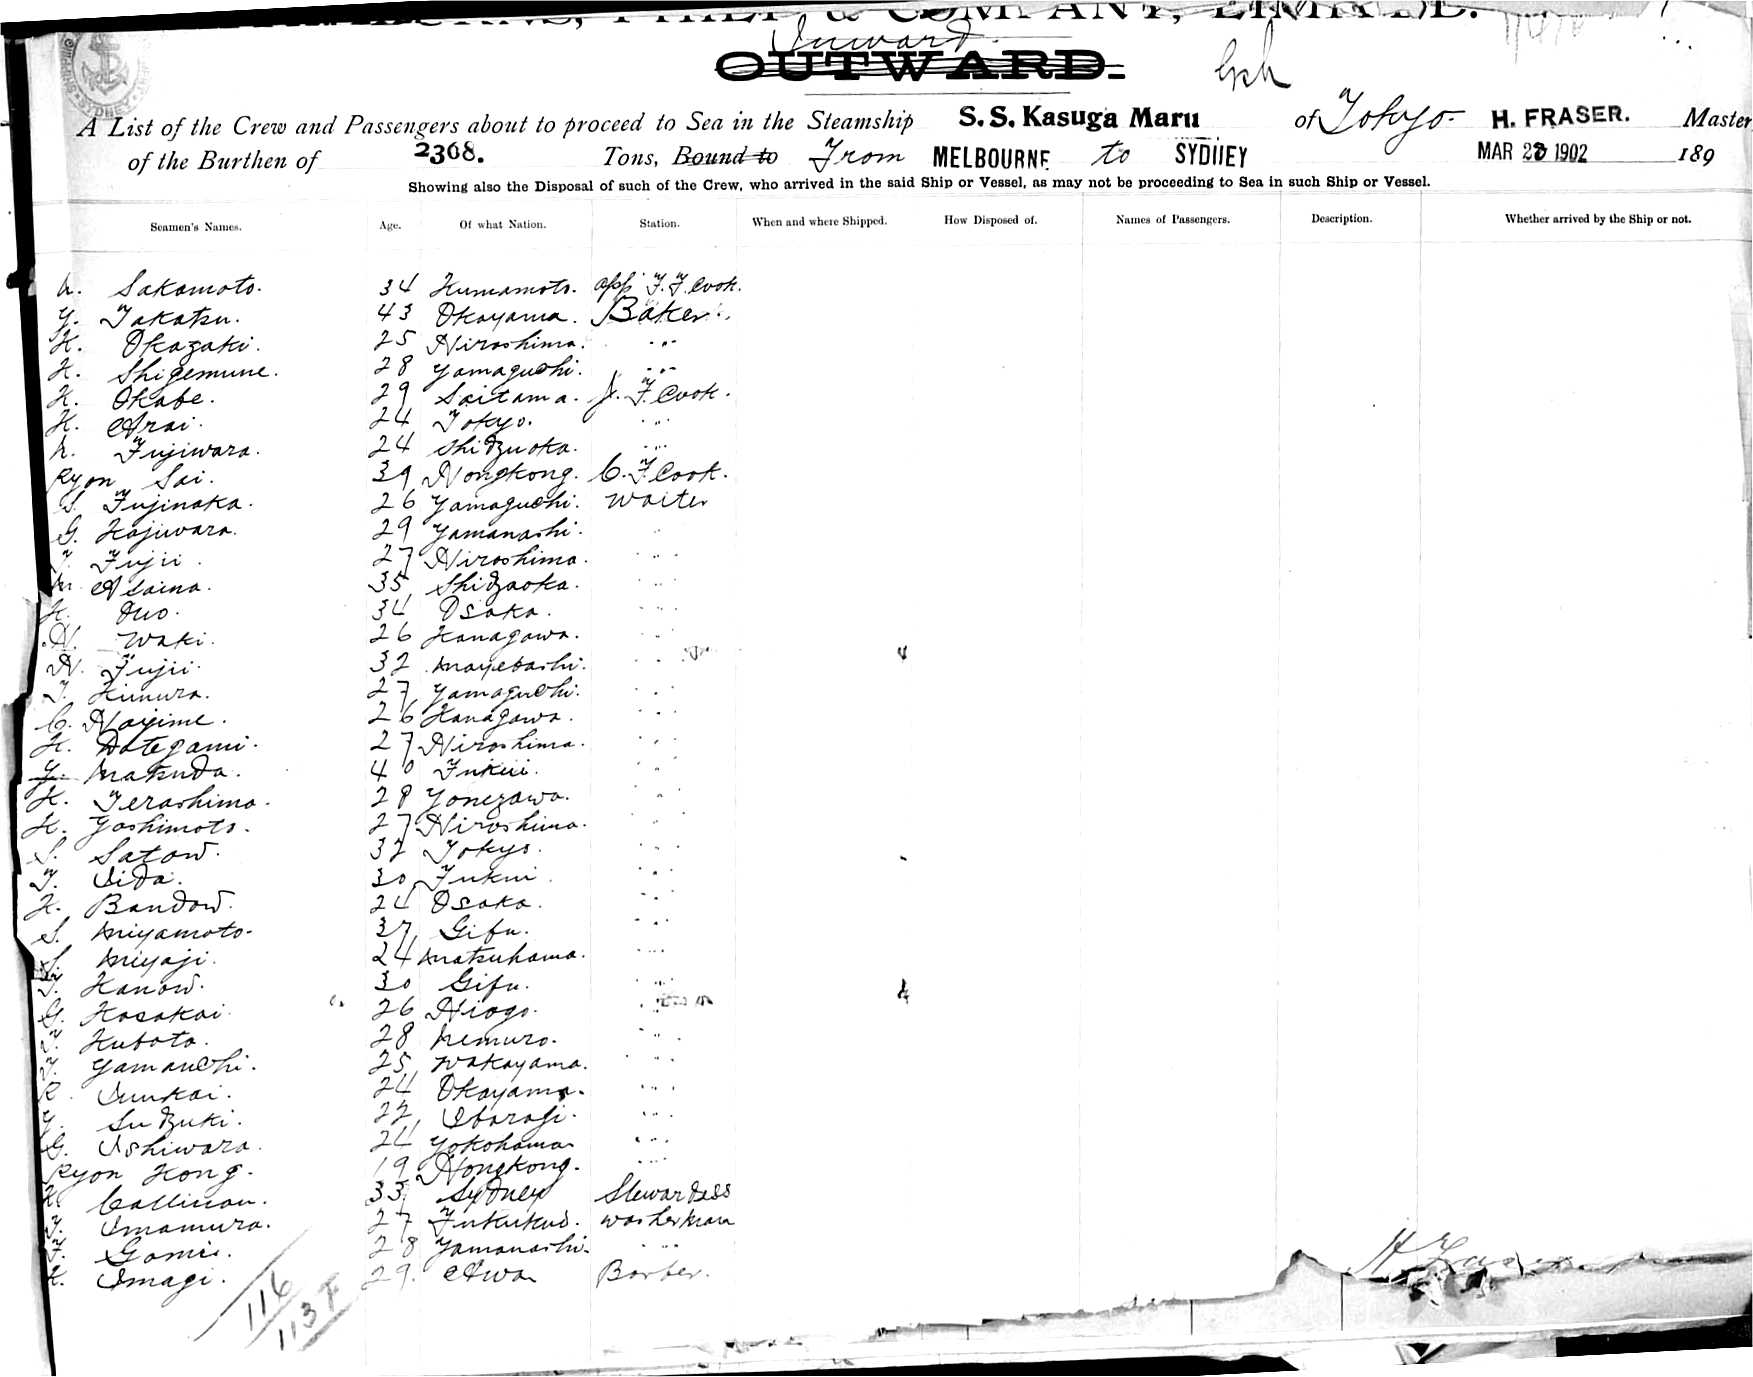 BURNS, PHILP & COMPANY, LIMITED.
Inward.
OUTWARD.
A List of the Crew and Passengers about to proceed to Sea in the Steamship S.S. Kasuga Maru of Tokyo. H. FRASER. Master
of the Burthen of 2368. Tons, Bound to From MELBOURNE to SYDNEY MAR 2 1902 189
Showing also the Disposal of such of the Crew, who arrived in the said Ship or Vessel, as may not be proceeding to Sea in such Ship or Vessel.
Seamen's Names. Age. Of what Nation. Station. When and where Shipped. How Disposed of. Names of Passengers. Description. Whether arrived by the Ship or not.
Sakamoto. 34 Kumamoto. app F.F. Cook.
Y. Takatsu. 43 Okayama. Baker.
K. Okazaki. 25 Hiroshima. " "
K. Shigemune. 28 Yamaguchi. " "
K. Okabe. 29 Saitama. J. F. Cook.
K. Arai. 24 Tokyo. " "
N. Fujiwara. 24 Shidzuoka. " "
Ryon Sai. 39 Hongkong. C. F. Cook.
S. Fujinaka. 26 Yamaguchi. Waiter
G. Kajiwara. 29 Yamanashi. "
T. Fujii. 27 Hiroshima. " "
M. Asaina. 35 Shidzuoka. " "
K. Ino. 34 Osaka. " "
H. Waki. 26 Kanagawa. " "
H. Fujii. 32 Mayebashi. " "
T. Kimura. 27 Yamaguchi. " "
C. Hajime. 26 Kanagawa. " "
K. Hategami. 27 Hiroshima. " "
Y. Matsuda. 40 Fukui. " "
K. Terashima. 28 Yonezawa. " "
K. Yoshimoto. 27 Hiroshima. " "
S. Satow. 32 Tokyo. " "
T. Iida. 30 Fukui. " "
K. Bandow. 24 Osaka. " "
S. Miyamoto. 37 Gifu. " "
S. Miyaji. 24 Matsuhama. " "
T. Kanow. 30 Gifu. " "
G. Kasakai. 26 Hiogo. " "
T. Kubota. 28 Nemuro. " "
T. Yamanchi. 25 Wakayama. " "
R. 24 Okayama. " "
Y. Sudzuki. 22 Ibaragi. " "
G. Ishiwara. 24 Yokohama " "
Ryon Kong. 19 Hongkong. " "
K. Callinan. 33 Sydney Stewardess
T. Imamura. 27 Washerman
F. Gomi. 28 Yamanashi. " "
K. Imagi. 29. Awa Barber.
H. Fraser
116
113